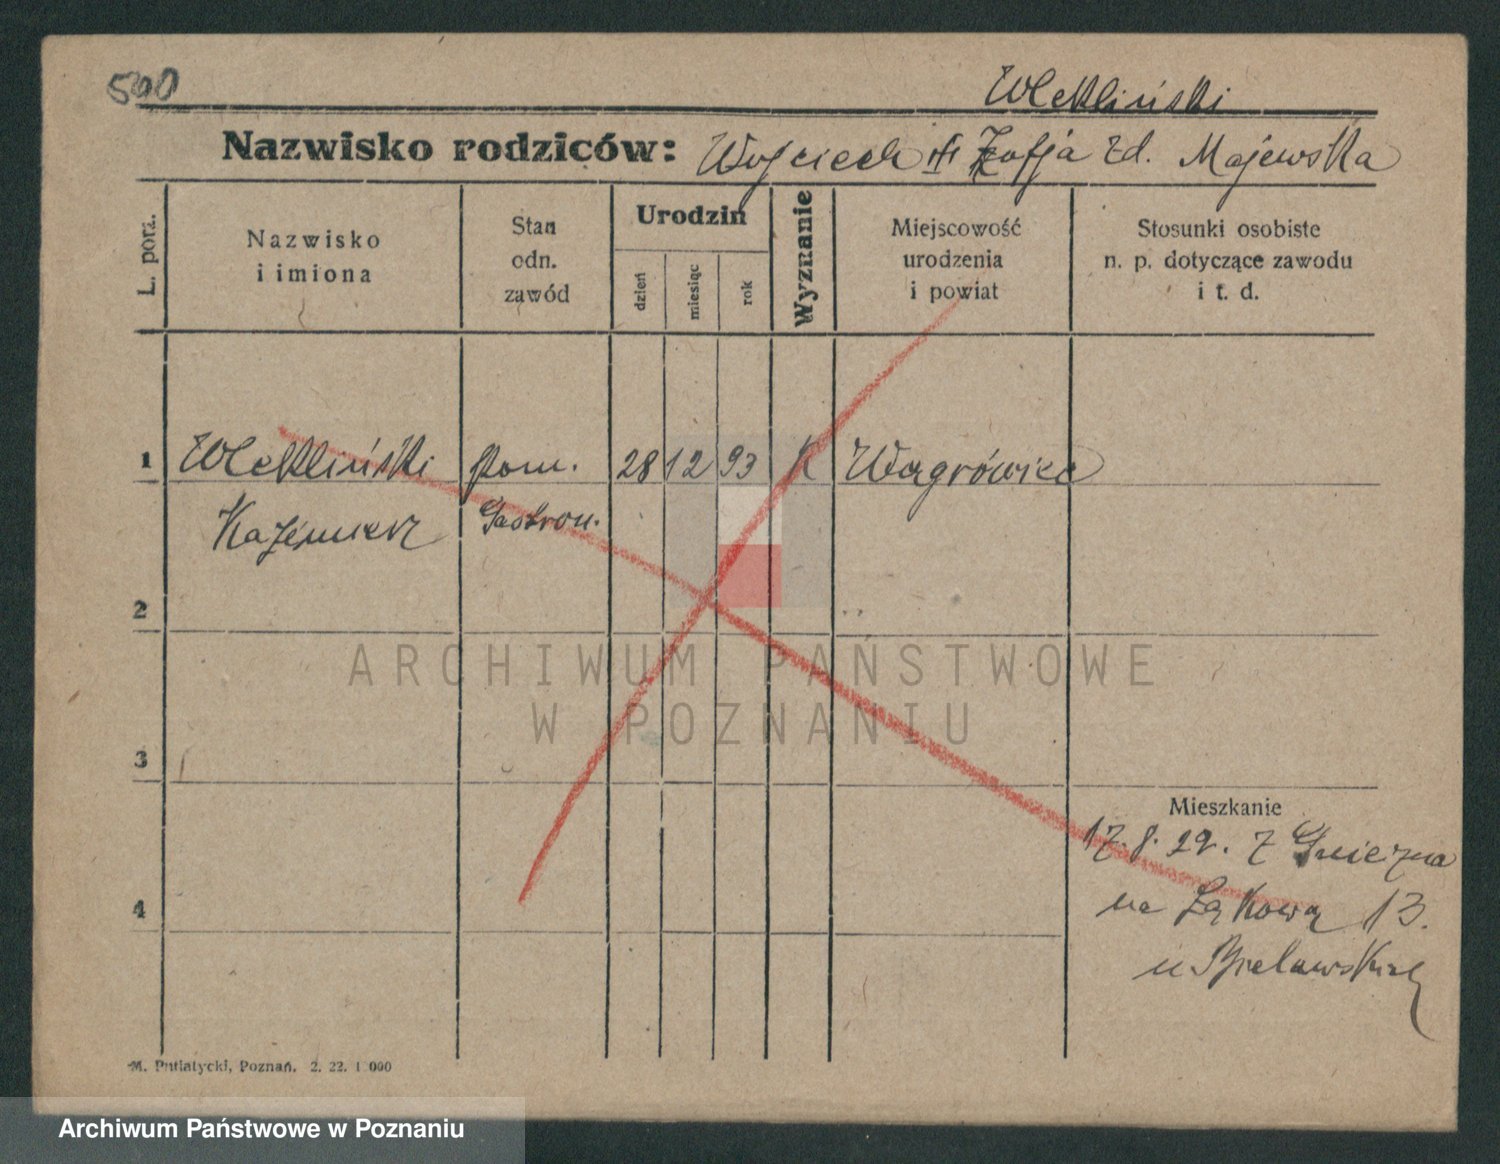 500
Wlekliński
Nazwisko rodziców: Wojciech i Zofja zd. Majewska
L. porz.
Nazwisko
i imiona
Stan
odn.
zawód
Urodzin
dzień
miesiąc
rok
Wyznanie
Miejscowość
urodzenia
i powiat
Stosunki osobiste
n. p. dotyczące zawodu
i t. d.
1 Wlekliński pom. 28 12 93 K Wągrówiec
Kazimierz Gastron.
2
ARCHIWUM PAŃSTWOWE
W POZNANIU
3
Mieszkanie
17.8.29. z Gniezna
4
na Łąkową 13.
u Bielawskiej
M. Putiatycki, Poznań. 2. 22. 1 000
Archiwum Państwowe w Poznaniu